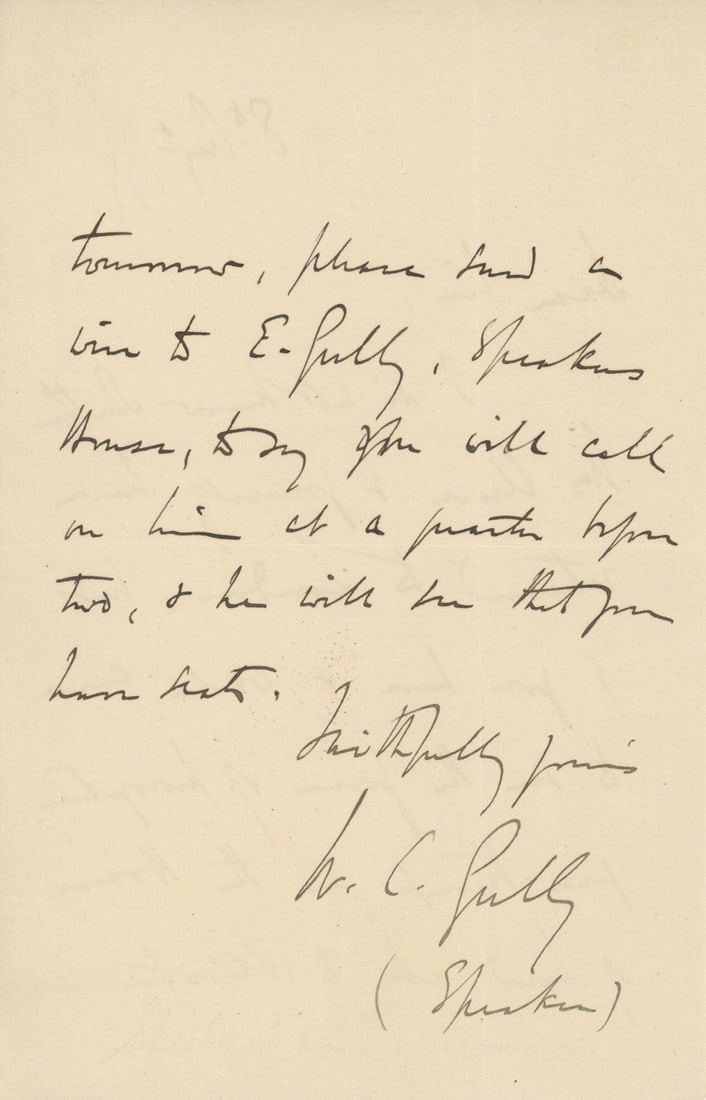 tomorrow, please send a
wire to E. Gully, Speakers
House, to say you will call
on him at a quarter before
two, & he will see that you
have seats.
Faithfully yours
W. C. Gully
(Speaker)